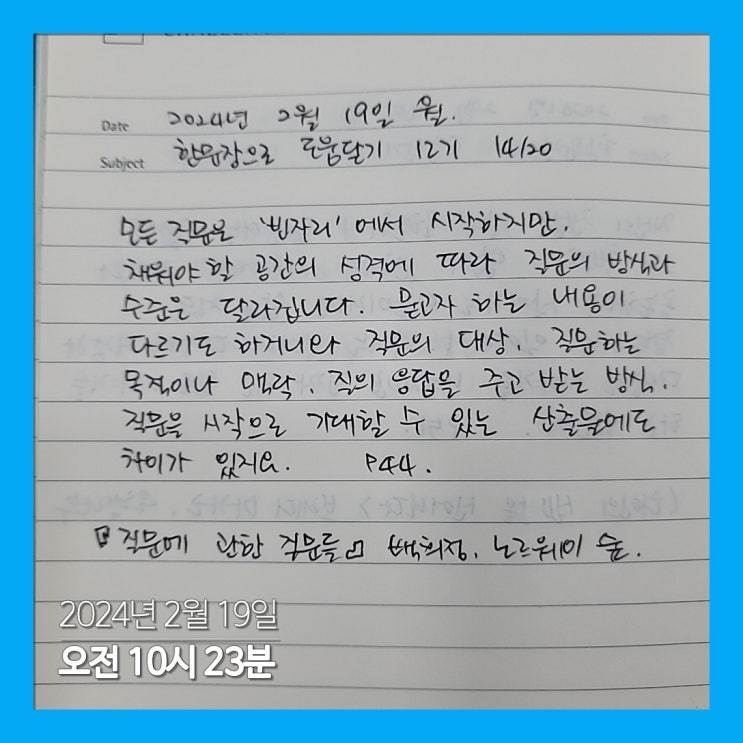 Date 2024년 2월 19일 월.
Subject 한문장으로 도움닫기 12기 14/20
모든 질문은 '빈자리'에서 시작하지만,
채워야 할 공간의 성격에 따라 질문의 방식과
수준은 달라집니다. 묻고자 하는 내용이
다르기도 하거니와 질문의 대상, 질문하는
목적이나 맥락, 질의 응답을 주고 받는 방식,
질문을 시작으로 기대할 수 있는 산출물에도
차이가 있지요. P44.
『질문에 관한 질문들』 백희정, 노르웨이 숲.
2024년 2월 19일
오전 10시 23분